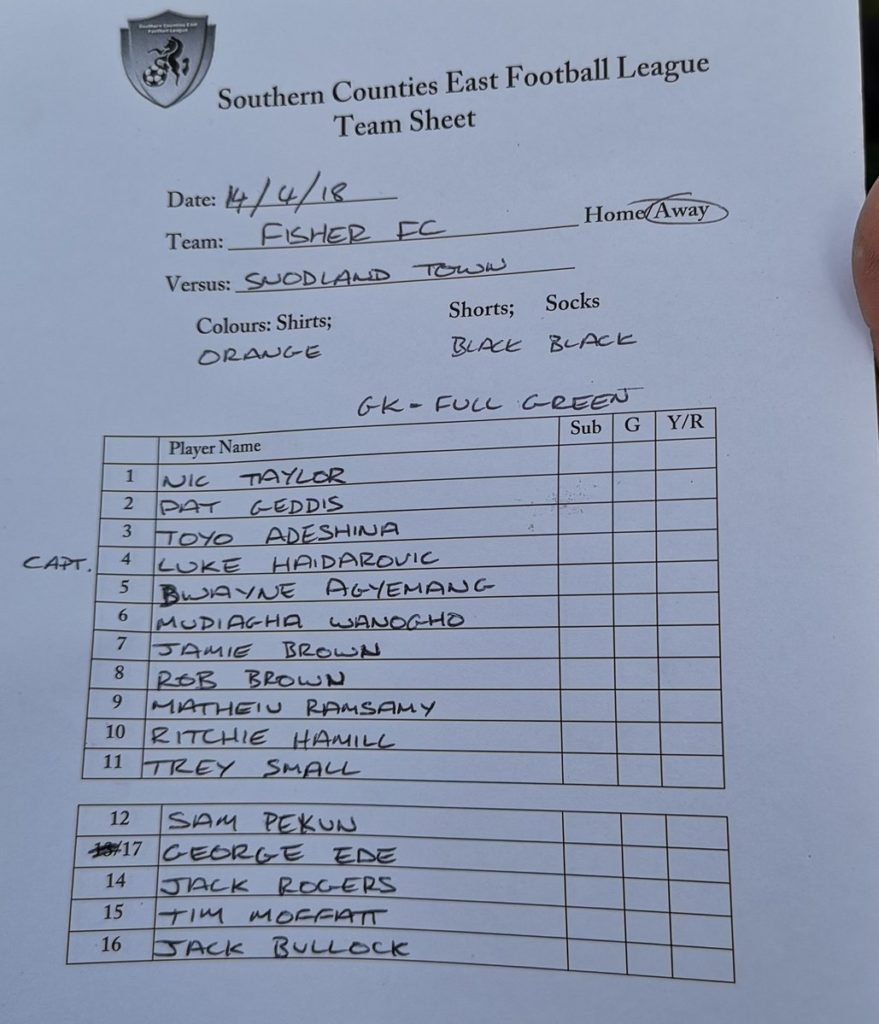 Southern Counties East
Football League
Southern Counties East Football League
Team Sheet
Date: 14/4/18
Team: FISHER FC Home/Away
Versus: SNODLAND TOWN
Colours: Shirts; Shorts; Socks
ORANGE BLACK BLACK
GK - FULL GREEN
Player Name Sub G Y/R
1 NIC TAYLOR
2 PAT GEDDIS
3 TOYO ADESHINA
CAPT. 4 LUKE HAIDAROVIC
5 BWAYNE AGYEMANG
6 MUDIAGHA WANOGHO
7 JAMIE BROWN
8 ROB BROWN
9 MATHEIU RAMSAMY
10 RITCHIE HAMILL
11 TREY SMALL
12 SAM PEKUN
13/17 GEORGE EDE
14 JACK ROGERS
15 TIM MOFFATT
16 JACK BULLOCK